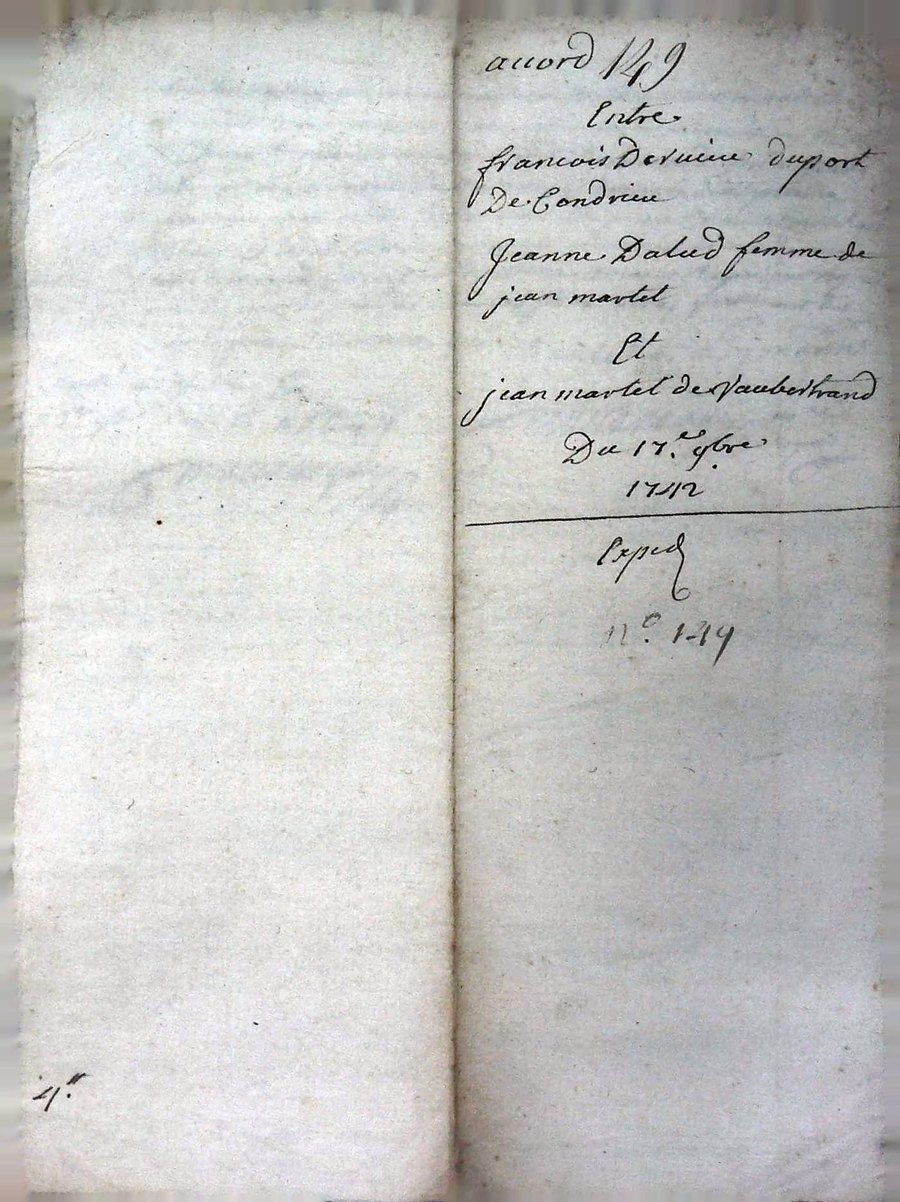 accord 149
Entre
francois Dervieu duport
De Condrieu
Jeanne Dalud femme de
jean martel
Et
jean martel de Vaubertrand
Du 17.e 9bre
1742
Exped
n.o 149
4.''